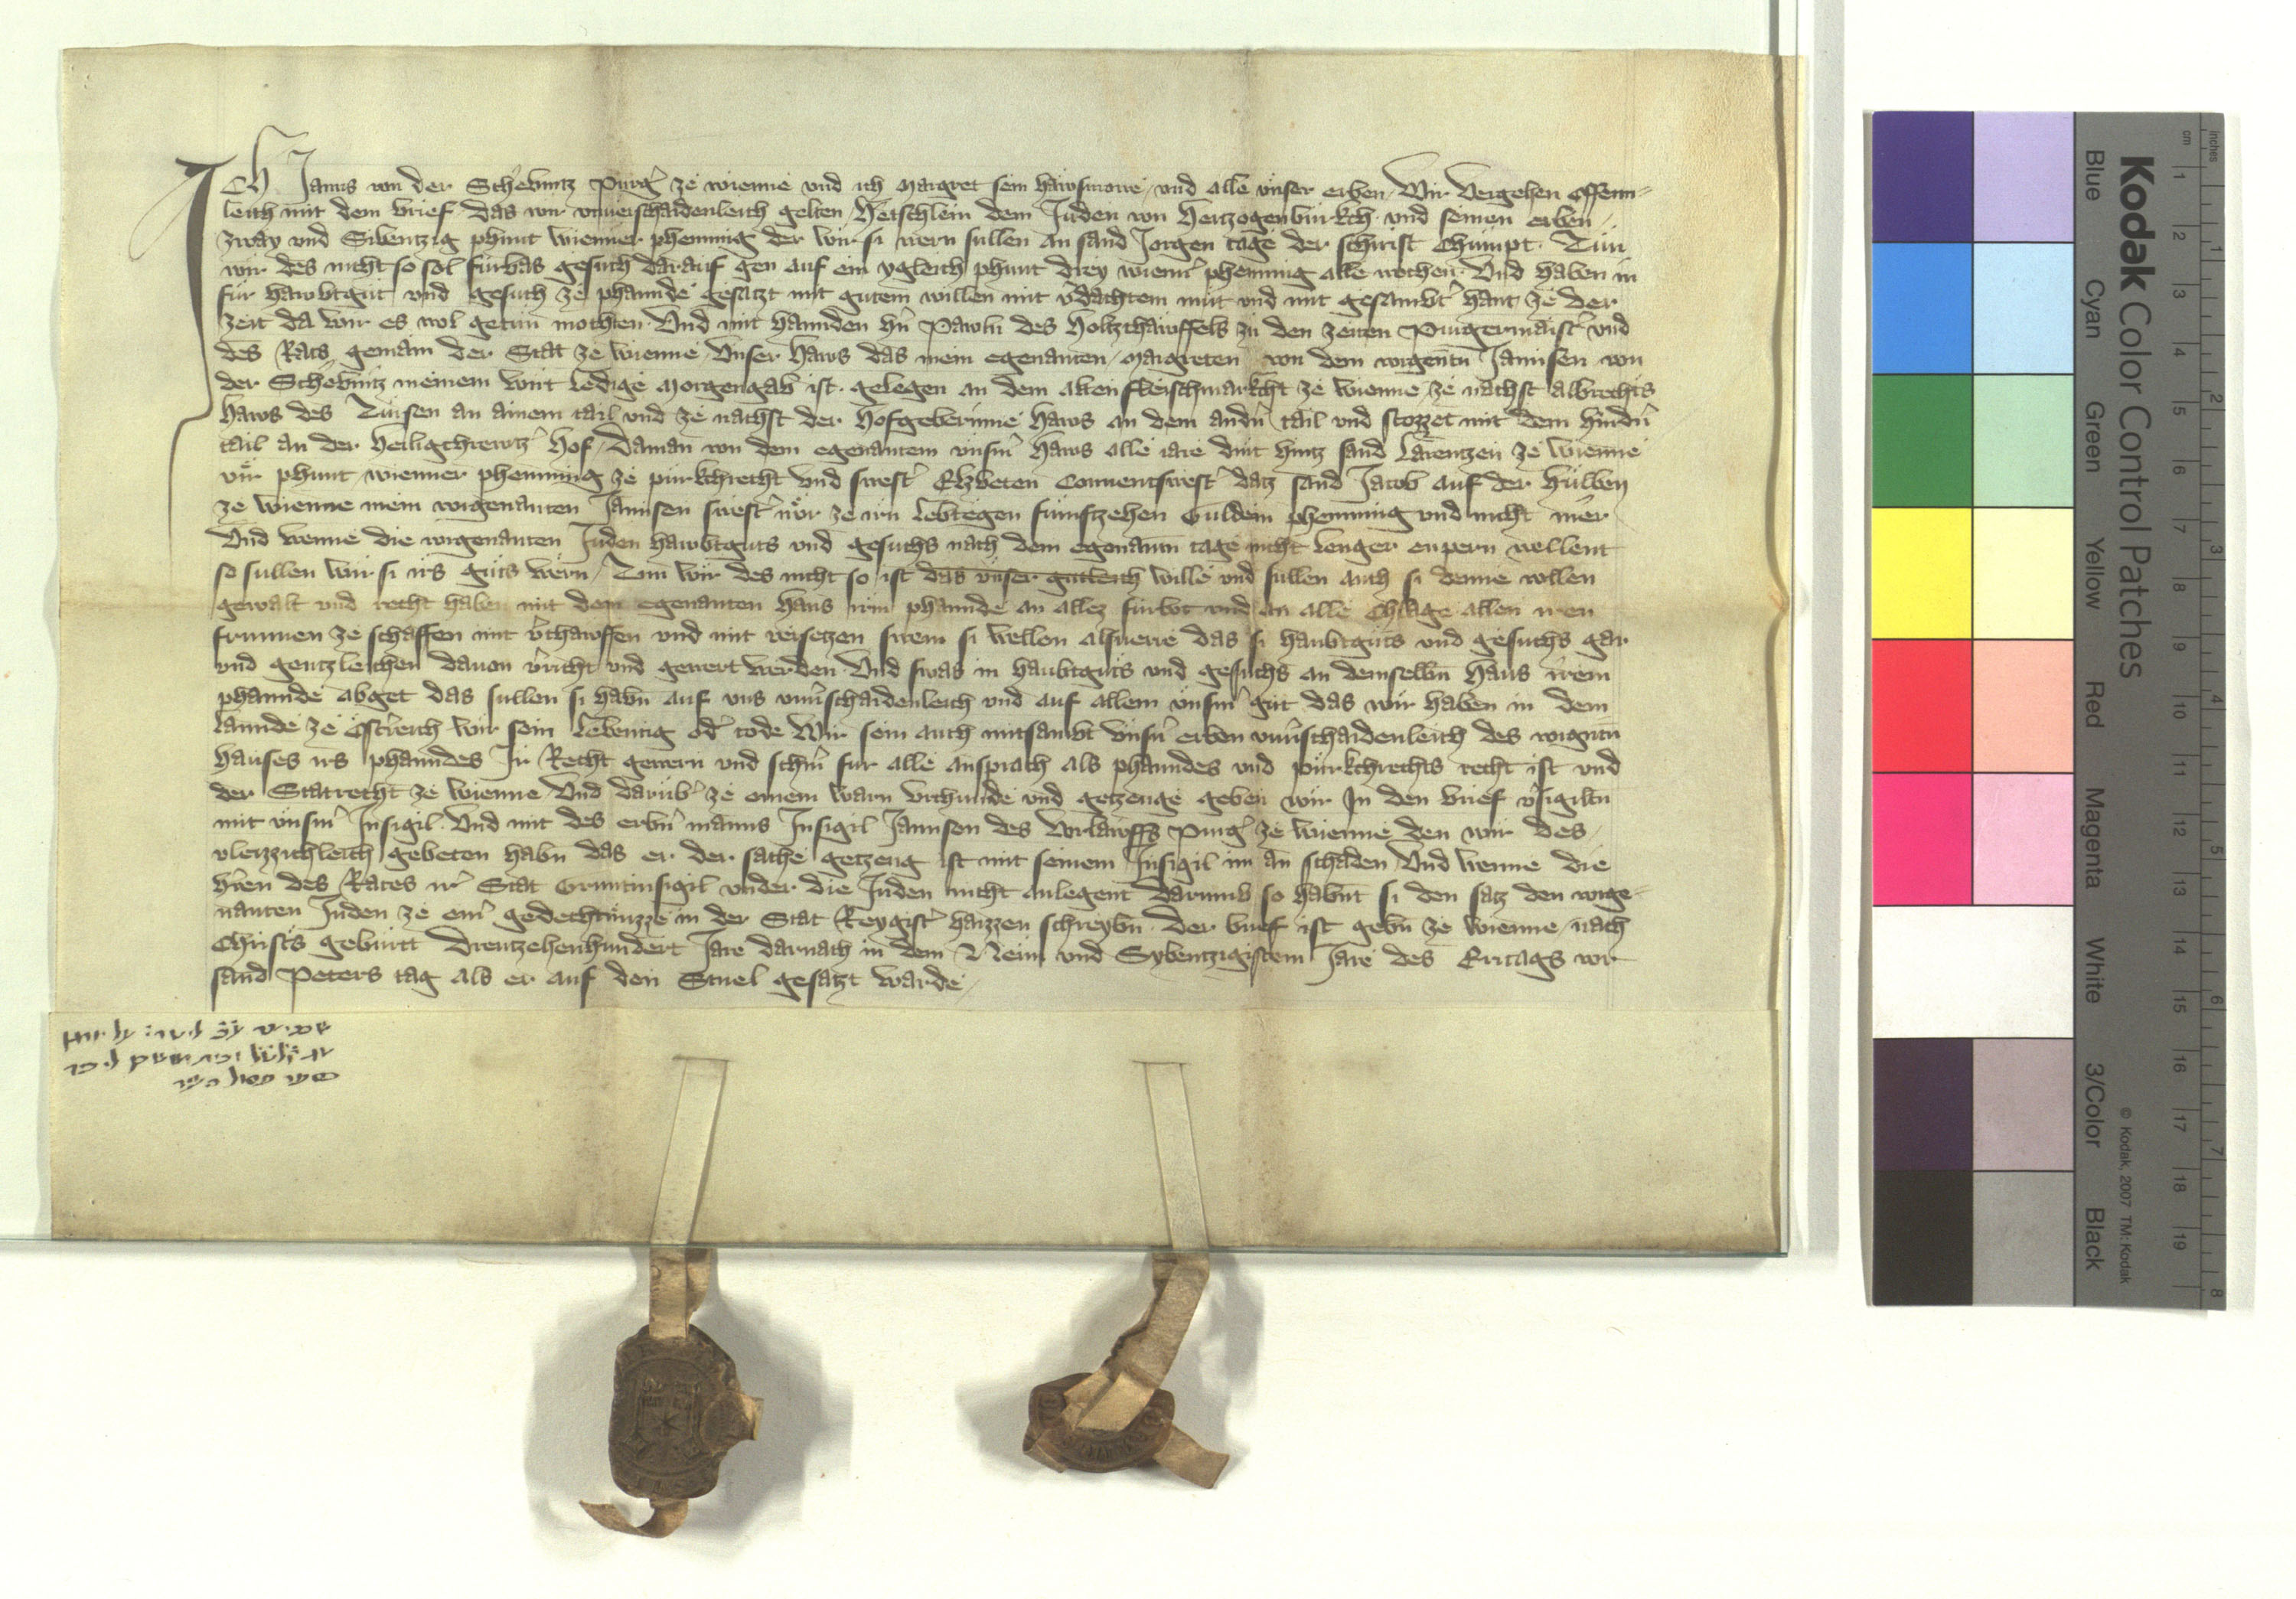 ICH Janns von der Schebnitz Purger ze wienne vnd ich Margret sein hawsvrowe / vnd alle vnser erben / Wir Vergehen offenn=
leich mit dem brief / das wir vnuerschaidenleich gelten / Hetschlein dem Juden von Hertzogenburkch vnd seinen erben /
zway vnd Sibentzig phunt wienner phenning der wir si wern sullen an sand Jorgen tage der schirist chumpt. Tun
wir des nicht so sol furbas gesuch darauf gen auf ein ygleich phunt drey wienner phenning alle wochen. Vnd haben in
fur hawbtgut vnd gesuch ze phannde gesatzt mit gutem willen mit verdachtem mut vnd mit gesambter hant ze der
zeit da wir es wol getun mochten. Vnd mit hannden hern Pawln des Holtzchawffels zu den zeiten Purgermaister vnd
des Rats gemain der Stat ze wienne / Vnser haws das mein egenanten / Margreten / von dem vorgenantn Jannsen von
der Schebnitz meinem wirt ledige morgengab ist. gelegen an dem alten fleischmarkcht ze wienne / ze nachst Albrechts
haws des Tursen an ainem tail vnd ze nachst der Hofgeberinne haws an dem andern tail vnd stozzet mit dem hindern
tail an der Heiligchrewtzer hof / Daman von dem egenantem vnserm haws alle iare dint hintz sand Larentzen ze wienne
vir phunt wienner phenning ze purkchrecht vnd swester Elzbeten Conuentswester datz sand Jacob auf der Hulben
ze wienne mein vorgenanten Jannsen swester nor ze irn lebtegen fumftzehen Guldein phenning vnd nicht mer
Vnd wenne die vorgenanten Juden hawbtguts vnd gesuchs nach dem egenantn tage nicht lenger enpern wellent
so sullen wir si irs guts wern / Tun wir des nicht so ist das vnser gutleich wille vnd sullen auch si denne vollen
gewalt vnd recht haben mit dem egenanten haus irm phannde an allez furbot vnd an alle Chlage allen iren
frumen ze schaffen mit verchawffen vnd mit versetzen swem si wellen alsuerre das si haubtguts vnd gesuchs gar
vnd gentzleichen dauon vericht vnd gewert werden. Vnd swas in haubtguts vnd gesuchs an demselben haus irem
phannde abget das sullen si habn auf vns vnuerschaidenleich vnd auf allem vnserm gut das wir haben in dem
Lannde ze Osterreich wir sein lebentig oder tode Wir sein auch mitsambt vnsern erben vnuerschaidenleich des vorgntn
hauses irs phanndes Ir Recht gewern vnd scherm fur alle ansprach als phanndes vnd purkchrechts recht ist vnd
der Statrecht ze wienne Vnd daruber ze einem warn vrchunde vnd getzeuge geben wir In den brief versigiltn
mit vnserm Insigil. Vnd mit des erbern manns Insigil Jannsen des Vrlawffs Purger ze wienne den wir des /
vleizzichleich gebeten habn das er der sache getzeug ist mit seinem Insigil im an schaden Vnd wenne die
Herren des Rates irer Stat Gruntinsigil vnder die Juden nicht anlegent darumb so habent si den satz den vorge=
nanten Juden ze einer gedechtnuzze in der Stat Reygister haizzen schreybn. der brief ist gebn ze wienne / nach
Christs geburtt Dreutzehenhundert Jare darnach in dem Neun vnd Sybentzigistem Jare des Eritags vor
sand Peters tag als er auf den Stuel gesatzt warde /
Kodak Color Control Patches
Blue Cyan Green Yellow Red Magenta White 3/Color Black
© Kodak, 2007 TM: Kodak
inches 1 2 3 4 5 6 7 8
cm 1 2 3 4 5 6 7 8 9 10 11 12 13 14 15 16 17 18 19